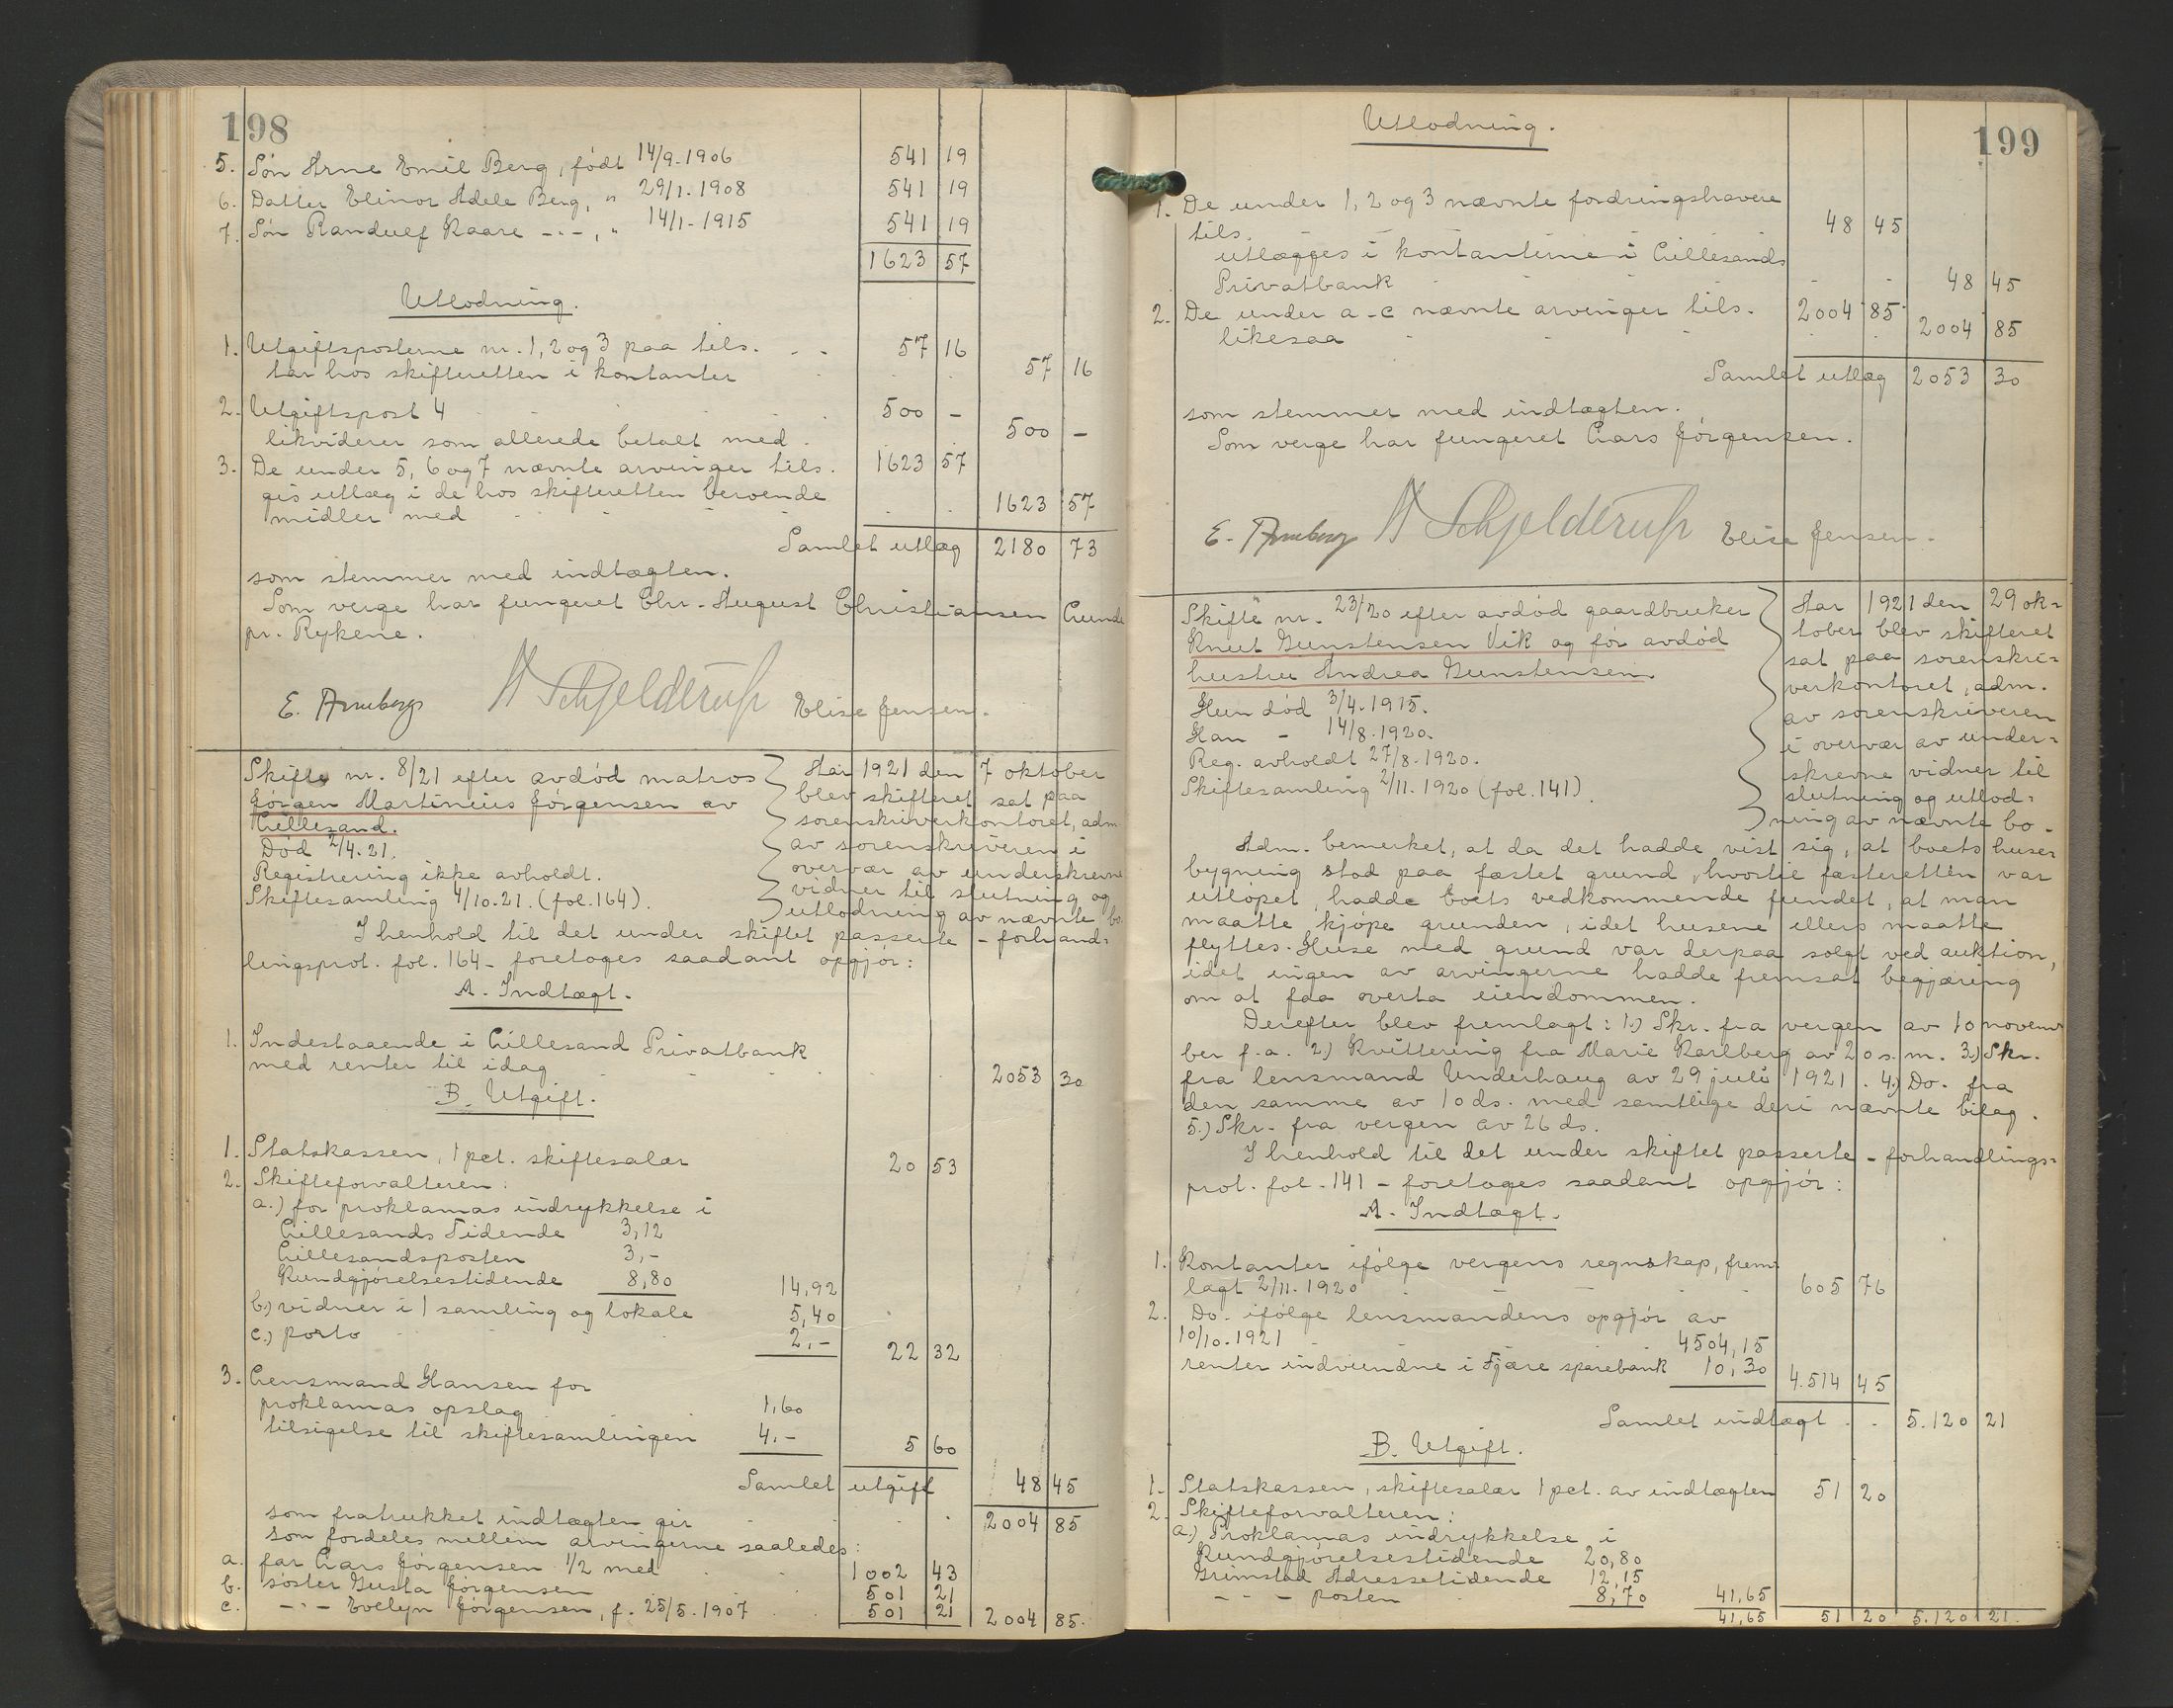 198
5. Søn Arne Emil Berg, født 14/9-1906 541 19
6. Datter Elinor Adele Berg, " 29/1-1908 541 19
7. Søn Randulf Kaare -"-, " 14/1-1915 541 19
1623 57
Utlodning.
1. Utgiftsposterne nr. 1, 2 og 3 paa tils. 57 16
tar hos skifteretten i kontanter 57 16
2. Utgiftspost 4 500 -
likviderer som allerede betalt med 500 -
3. De under 5, 6 og 7 nævnte arvinger tils. 1623 57
gis utlæg i de hos skifteretten beroende
midler med 1623 57
Samlet utlæg 2180 73
som stemmer med indtægten.
Som verge har fungeret Chr. August Christiansen Lunde
pr. Rykene.
E. Armeberg A Schjelderup Elise Jensen.
Skifte nr. 8/21 efter avdød matros
Jørgen Martinius Jørgensen av
Lillesand.
Død 2/4.21.
Registrering ikke avholdt.
Skiftesamling 4/10.21. (fol. 164).
Aar 1921 den 7 oktober
blev skifteret sat paa
sorenskriverkontoret, adm.
av sorenskriveren i
overvær av underskrevne
vidner til slutning og
utlodning av nævnte bo.
I henhold til det under skiftet passerte - forhand=
lingsprot. fol. 164 - foretoges saadant opgjør:
A. Indtægt.
1. Indestaaende i Lillesand Privatbank
med renter til idag 2053 30
B. Utgift.
1. Statskassen, 1 pct. skiftesalær 20 53
2. Skifteforvalteren:
a.) for proklamas indrykkelse i
Lillesands Tidende 3,12
Lillesandsposten 3,-
Kundgjørelsestidende 8,80 14,92
b.) vidner i 1 samling og lokale 5,40
c.) porto 2,- 22 32
3. Lensmand Hansen for
proklamas opslag 1,60
tilsigelse til skiftesamlingen 4.- 5 60
Samlet utgift 48 45
som fratrukket indtægten gir 2004 85
som fordeles mellem arvingerne saaledes:
a. far Lars Jørgensen 1/2 med 1002 43
b. søster Gusta Jørgensen 501 21
c. -"- Evelyn Jørgensen, f. 25/5.1907 501 21 2004 85.
199
Utlodning.
1. De under 1, 2 og 3 nævnte fordringshavere
tils. 48 45
utlægges i kontanterne i Lillesands
Privatbank 48 45
2. De under a-c nævnte arvinger tils. 2004 85
likesaa 2004 85
Samlet utlæg 2053 30
som stemmer med indtægten.
Som verge har fungeret Lars Jørgensen.
E. Armeberg A Schjelderup Elise Jensen.
Skifte nr. 23/20 efter avdød gaardbruker
Knut Gunstensen Vik og før avdød
hustru Andrea Gunstensen.
Hun død 3/4.1915.
Han - 14/8.1920.
Reg. avholdt 27/8.1920.
Skiftesamling 2/11.1920 (fol. 141).
Aar 1921 den 29 ok=
tober blev skifteret
sat paa sorenskri=
verkontoret, adm.
av sorenskriveren
i overvær av under=
skrevne vidner til
slutning og utlod=
ning av nævnte bo.
Adm. bemerket, at da det hadde vist sig, at boets huse=
bygning stod paa fæstet grund, hvortil fæsteretten var
utløpet, hadde boets vedkommende fundet, at man
maatte kjøpe grunden, idet husene ellers maatte
flyttes. Huse med grund var derpaa solgt ved auktion,
idet ingen av arvingerne hadde fremsat begjæring
om at faa overta eiendommen.
Derefter blev fremlagt: 1.) Skr. fra vergen av 10 novem=
ber f.a. 2.) Kvittering fra Marie Karlberg av 20 s.m. 3.) Skr.
fra lensmand Underhaug av 29 juli 1921. 4.) Do. fra
den samme av 10 ds. med samtlige deri nævnte bilag.
5.) Skr. fra vergen av 26 ds.
I henhold til det under skiftet passerte - forhandlings=
prot. fol. 141 - foretoges saadant opgjør:
A. Indtægt.
1. Kontanter ifølge vergens regnskap, frem=
lagt 2/11.1920 605 76
2. Do. ifølge lensmandens opgjør av
10/10.1921 4504,15
renter indvundne i Fjære sparebank 10,30 4.514 45
Samlet indtægt 5.120 21
B. Utgift.
1. Statskassen, skiftesalær 1 pct. av indtægten 51 20
2. Skifteforvalteren:
a.) Proklamas indrykkelse i
Kundgjørelsestidende 20,80
Grimstad Adressetidende 12,15
-"- posten 8,70 41,65
41,65 51 20 5.120 21.